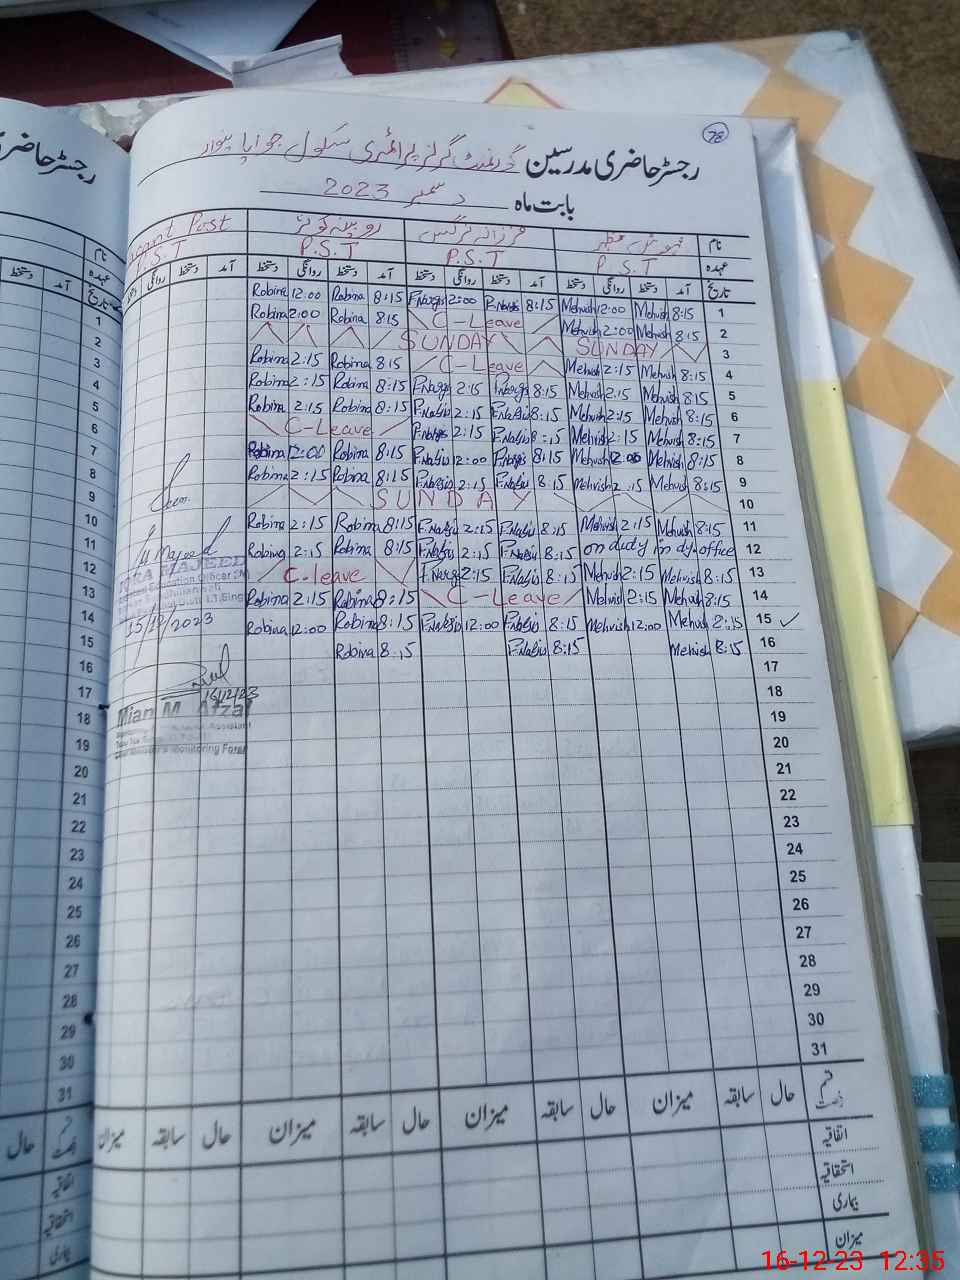 78
رجسٹر حاضری مدرسین گورنمنٹ گرلز پرائمری سکول
بابت ماہ دسمبر 2023
نام فرزانہ نرگس روبینہ کوثر Post
عہدہ P.S.T P.S.T P.S.T
تاریخ آمد دستخط روانگی دستخط آمد دستخط روانگی دستخط آمد دستخط روانگی دستخط آمد دستخط روانگی
Robina 12:00 Robina 8:15 F.Nargis 2:00 F.Nargis 8:15 Mehvish 12:00 Mehvish 8:15 1
Robina 2:00 Robina 8:15 C-Leave Mehvish 2:00 Mehvish 8:15 2
SUNDAY SUNDAY 3
Robina 2:15 Robina 8:15 C-Leave Mehvish 2:15 Mehvish 8:15 4
Robina 2:15 Robina 8:15 F.Nargis 2:15 F.Nargis 8:15 Mehvish 2:15 Mehvish 8:15 5
Robina 2:15 Robina 8:15 F.Nargis 2:15 F.Nargis 8:15 Mehvish 2:15 Mehvish 8:15 6
C-Leave F.Nargis 2:15 F.Nargis 8:15 Mehvish 2:15 Mehvish 8:15 7
Robina 12:00 Robina 8:15 F.Nargis 12:00 F.Nargis 8:15 Mehvish 12:00 Mehvish 8:15 8
Robina 2:15 Robina 8:15 F.Nargis 2:15 F.Nargis 8:15 Mehvish 2:15 Mehvish 8:15 9
SUNDAY 10
Robina 2:15 Robina 8:15 F.Nargis 2:15 F.Nargis 8:15 Mehvish 2:15 Mehvish 8:15 11
Robina 2:15 Robina 8:15 F.Nargis 2:15 F.Nargis 8:15 on duty in dy.office 12
C-leave F.Nargis 2:15 F.Nargis 8:15 Mehvish 2:15 Mehvish 8:15 13
Robina 2:15 Robina 8:15 C-Leave Mehvish 2:15 Mehvish 8:15 14
Robina 12:00 Robina 8:15 F.Nargis 12:00 F.Nargis 8:15 Mehvish 12:00 Mehvish 8:15 15 ✓
Robina 8:15 F.Nargis 8:15 Mehvish 8:15 16
17
18
19
20
21
22
23
24
25
26
27
28
29
30
31
Majeed
MAJEED
15/12/2023
16/12/23
Mian M. Afzal
Monitoring Force
قسم رخصت حال سابقہ میزان حال سابقہ میزان حال سابقہ میزان حال سابقہ میزان
اتفاقیہ
استحقاقیہ
بیماری
میزان
رجسٹر حاضری
نام
عہدہ
تاریخ آمد دستخط
1
2
3
4
5
6
7
8
9
10
11
12
13
14
15
16
17
18
19
20
21
22
23
24
25
26
27
28
29
30
31
حال
اتفاقیہ
استحقاقیہ
بیماری
16-12-23 12:35